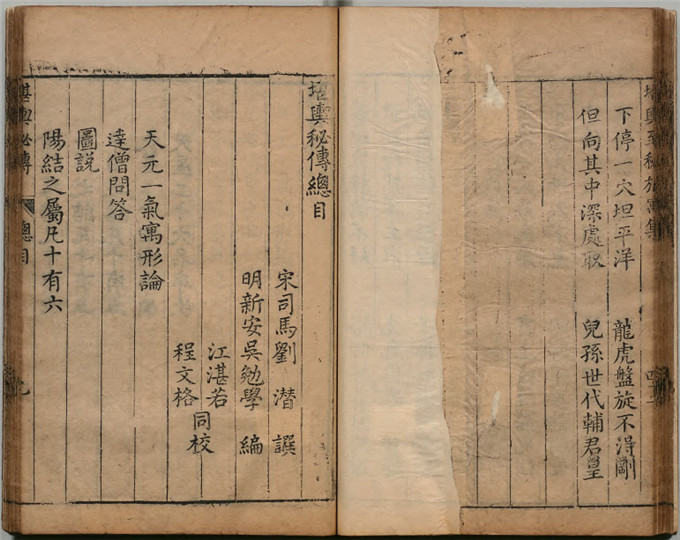 堪輿至秘旅寓集
下停一穴坦平洋 龍虎盤旋不淂剛
但向其中深處取 兒孫世代輔君皇
堪輿秘傳總目
宋司馬劉潛譔
明新安吳勉學編
江湛若
程文格
同校
天元一氣寓形論
達僧問答
圖說
陽結之屬凡十有六
堪輿秘傳 總目